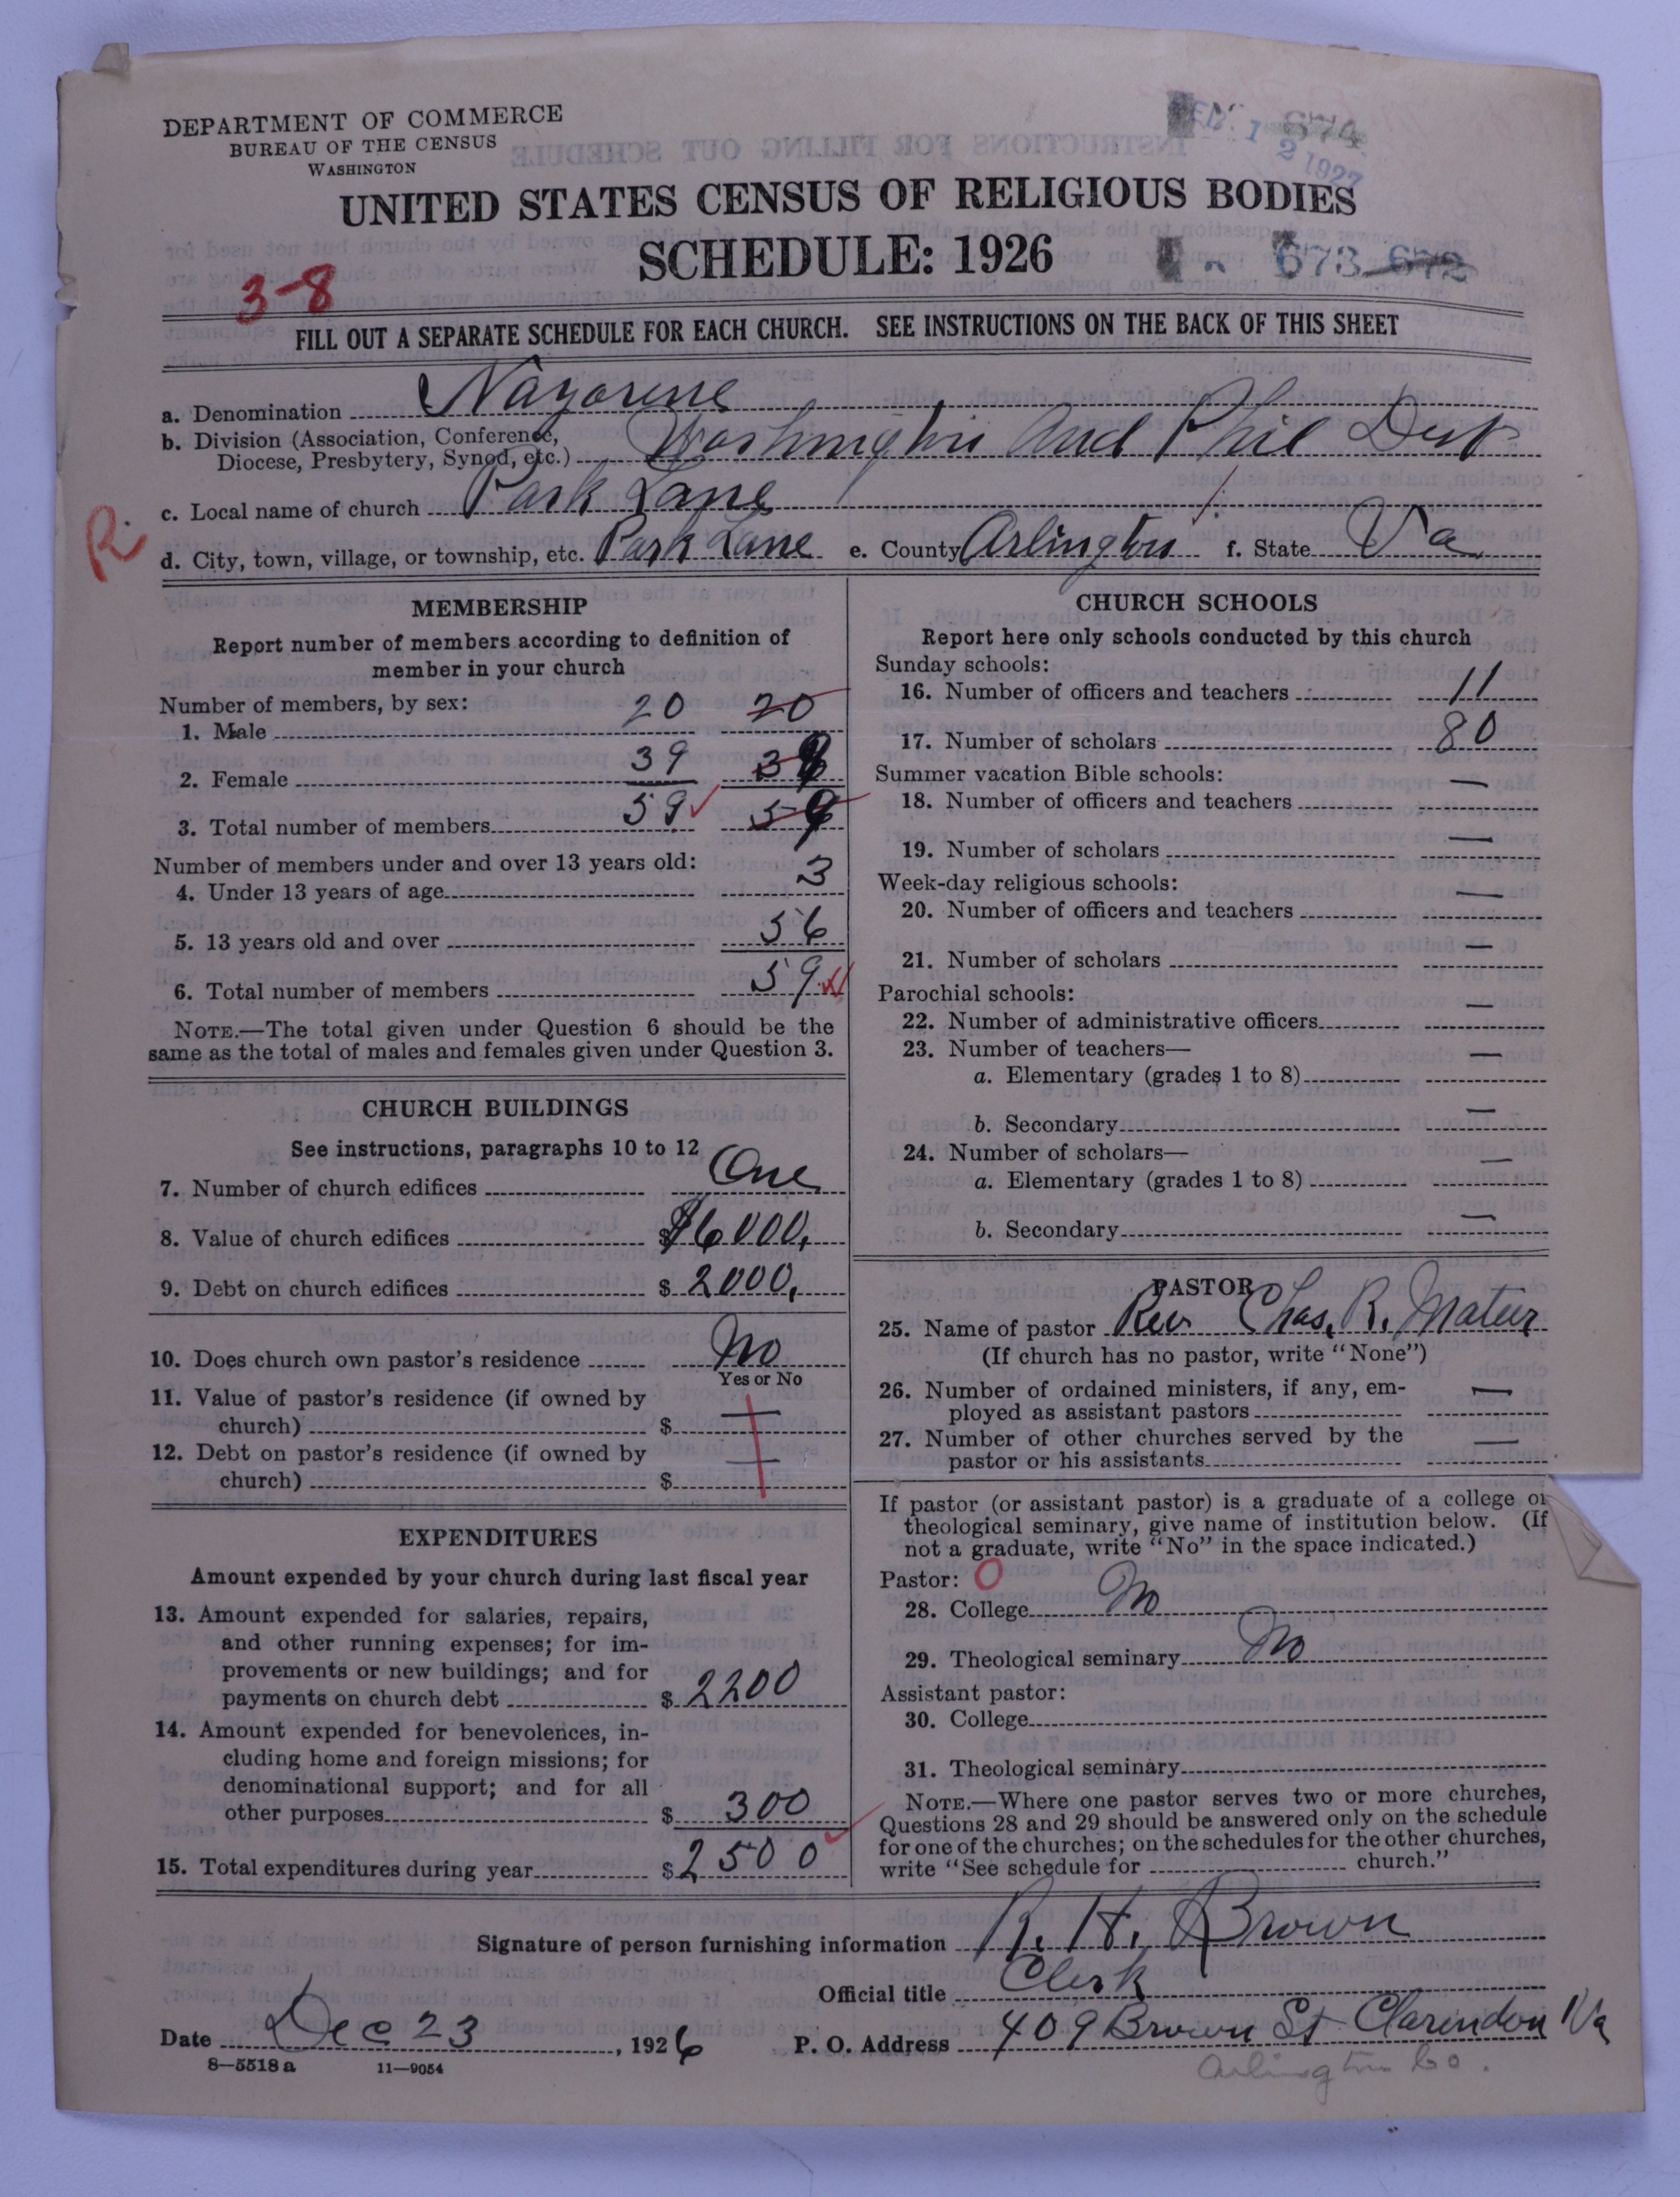 DEPARTMENT OF COMMERCE
BUREAU OF THE CENSUS
WASHINGTON
674
1 2 1927
UNITED STATES CENSUS OF RELIGIOUS BODIES
SCHEDULE: 1926
673 672
3-8
FILL OUT A SEPARATE SCHEDULE FOR EACH CHURCH. SEE INSTRUCTIONS ON THE BACK OF THIS SHEET
a. Denomination Nazarene
b. Division (Association, Conference, Diocese, Presbytery, Synod, etc.) Washington and Phil Dist
c. Local name of church Park Lane
R.
d. City, town, village, or township, etc. Park Lane e. County Arlington f. State Va
MEMBERSHIP
Report number of members according to definition of
member in your church
Number of members, by sex:
1. Male 20 20
2. Female 39 39
3. Total number of members 59 59
Number of members under and over 13 years old:
4. Under 13 years of age 3
5. 13 years old and over 56
6. Total number of members 59
NOTE.—The total given under Question 6 should be the
same as the total of males and females given under Question 3.
CHURCH BUILDINGS
See instructions, paragraphs 10 to 12
7. Number of church edifices One
8. Value of church edifices $6000.
9. Debt on church edifices $2000.
10. Does church own pastor's residence No
Yes or No
11. Value of pastor's residence (if owned by
church) $ —
12. Debt on pastor's residence (if owned by
church) $ —
EXPENDITURES
Amount expended by your church during last fiscal year
13. Amount expended for salaries, repairs,
and other running expenses; for im-
provements or new buildings; and for
payments on church debt $2200
14. Amount expended for benevolences, in-
cluding home and foreign missions; for
denominational support; and for all
other purposes $300
15. Total expenditures during year $2500
CHURCH SCHOOLS
Report here only schools conducted by this church
Sunday schools:
16. Number of officers and teachers 11
17. Number of scholars 80
Summer vacation Bible schools:
18. Number of officers and teachers —
19. Number of scholars —
Week-day religious schools:
20. Number of officers and teachers —
21. Number of scholars —
Parochial schools:
22. Number of administrative officers —
23. Number of teachers—
a. Elementary (grades 1 to 8) —
b. Secondary —
24. Number of scholars—
a. Elementary (grades 1 to 8) —
b. Secondary —
PASTOR
25. Name of pastor Rev Chas. R. Mateer
(If church has no pastor, write "None")
26. Number of ordained ministers, if any, em-
ployed as assistant pastors —
27. Number of other churches served by the
pastor or his assistants —
If pastor (or assistant pastor) is a graduate of a college or
theological seminary, give name of institution below. (If
not a graduate, write "No" in the space indicated.)
Pastor: 0
28. College No
29. Theological seminary No
Assistant pastor:
30. College
31. Theological seminary
NOTE.—Where one pastor serves two or more churches,
Questions 28 and 29 should be answered only on the schedule
for one of the churches; on the schedules for the other churches,
write "See schedule for church."
Signature of person furnishing information R. H. Brown
Official title Clerk
Date Dec 23, 1926 P. O. Address 409 Brown St Clarendon Va
Arlington Co.
8—5518 a 11—9054